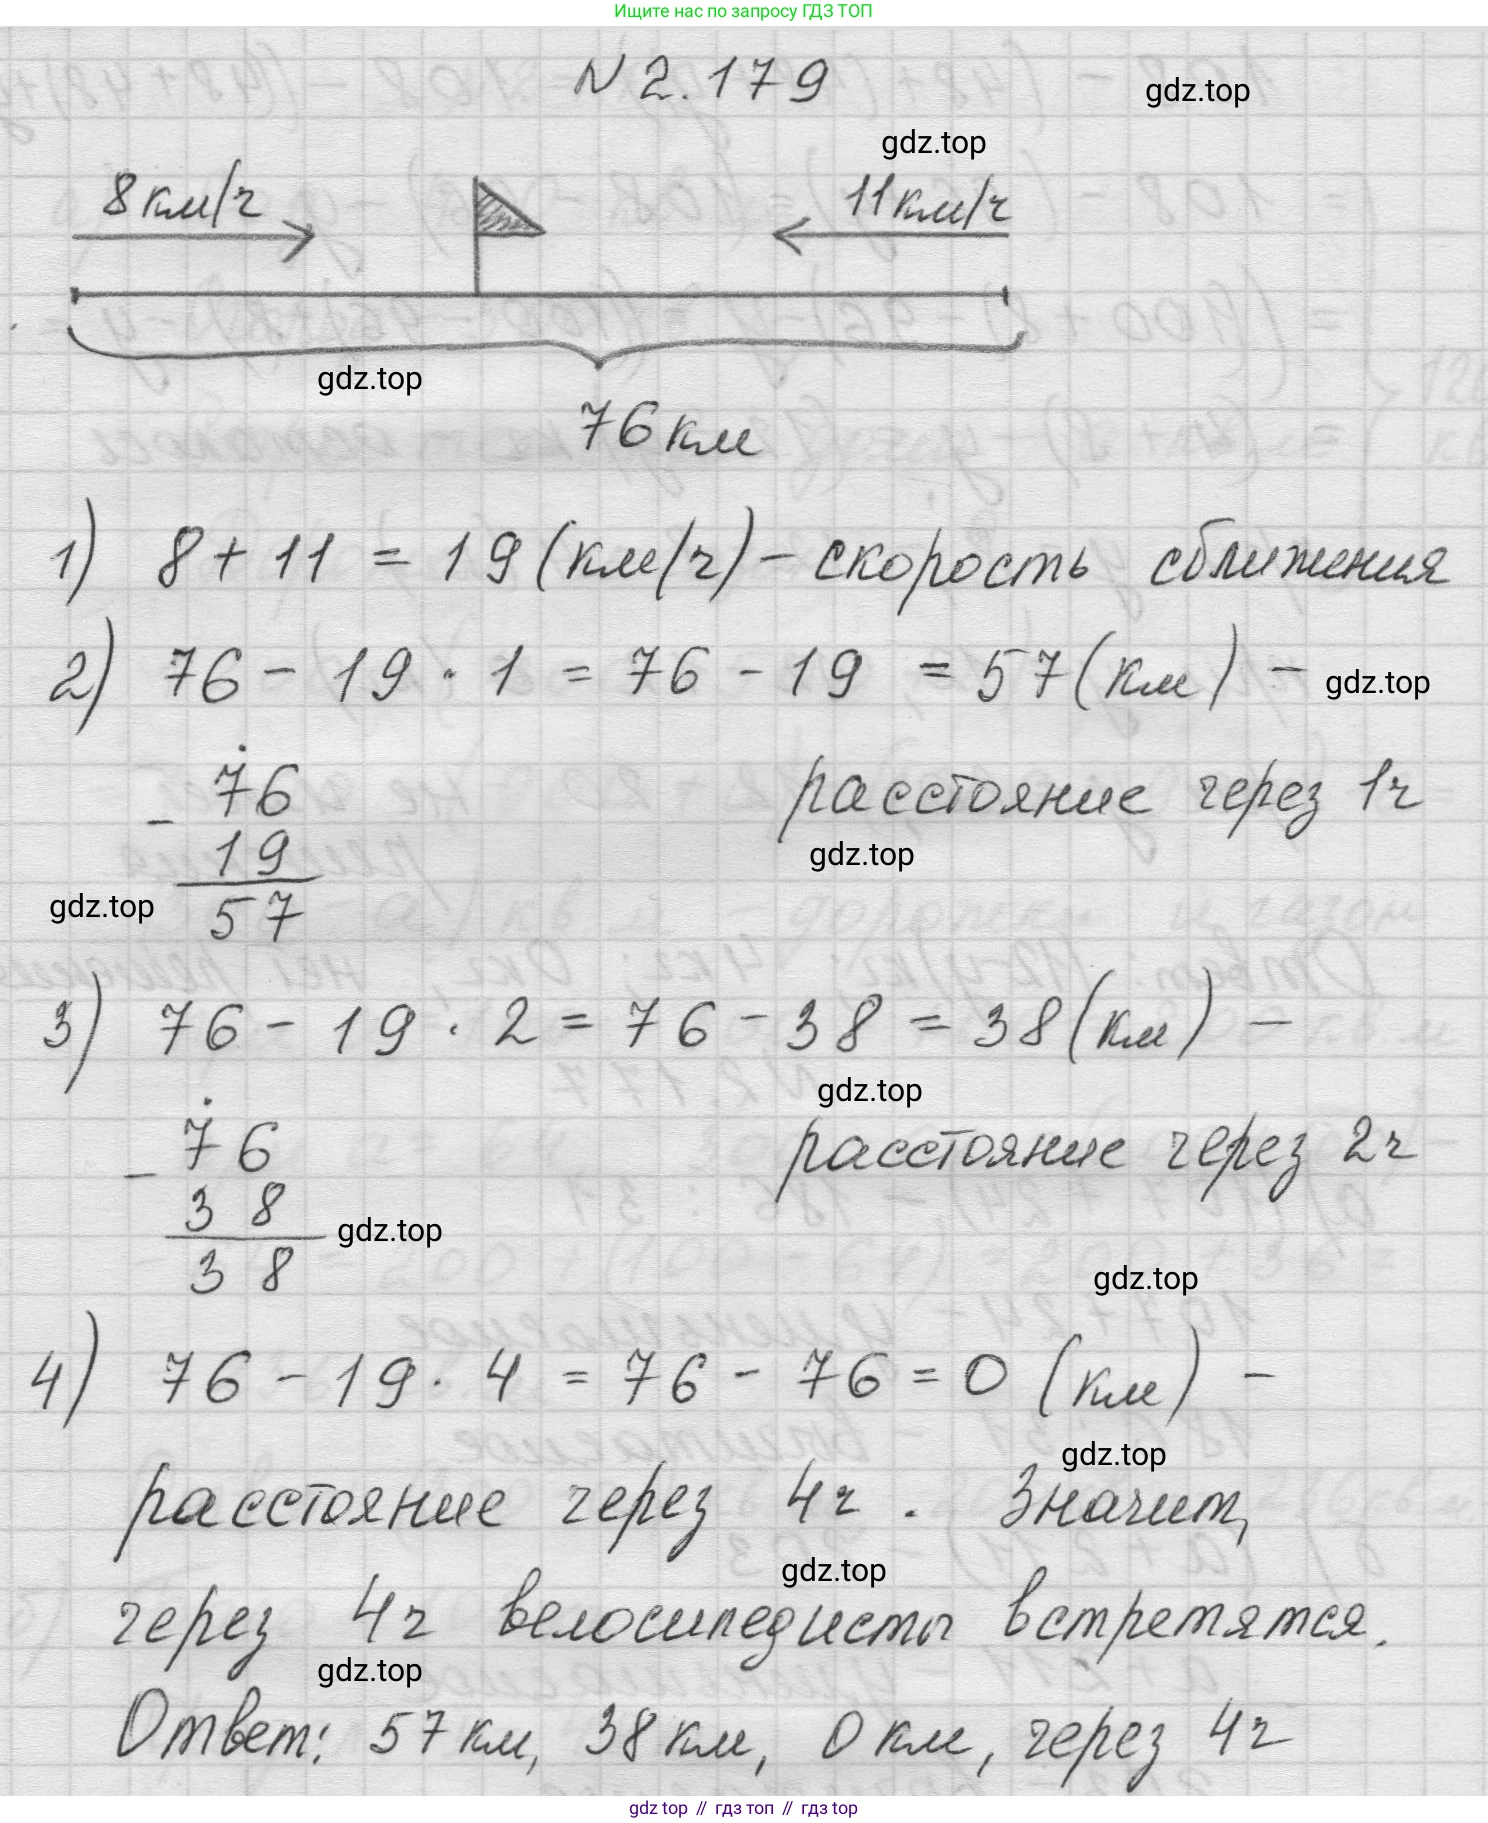 Ищите нас по запросу ГДЗ ТОП
N 2.179
gdz.top
gdz.top
8 км/ч
11 км/ч
gdz.top
76 км
1) 8 + 11 = 19 (км/ч) - скорость сближения
2) 76 - 19 · 1 = 76 - 19 = 57 (км) -
gdz.top
расстояние через 1ч
- 76
19
57
gdz.top
gdz.top
3) 76 - 19 · 2 = 76 - 38 = 38 (км) -
gdz.top
расстояние через 2ч
- 76
38
38
gdz.top
gdz.top
4) 76 - 19 · 4 = 76 - 76 = 0 (км) -
gdz.top
расстояние через 4ч. Значит,
gdz.top
через 4ч велосипедисты встретятся.
gdz.top
Ответ: 57 км, 38 км, 0 км, через 4ч
gdz top // гдз топ // гдз top